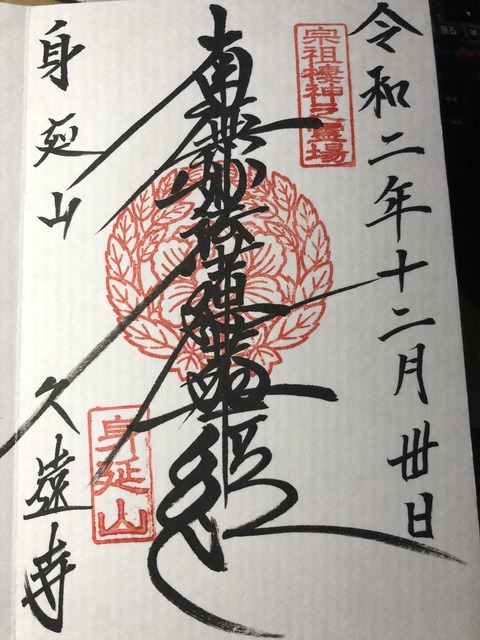 令和二年十二月卅日
宗祖棲神之霊場
南無妙法蓮華経
身延山
身延山 久遠寺